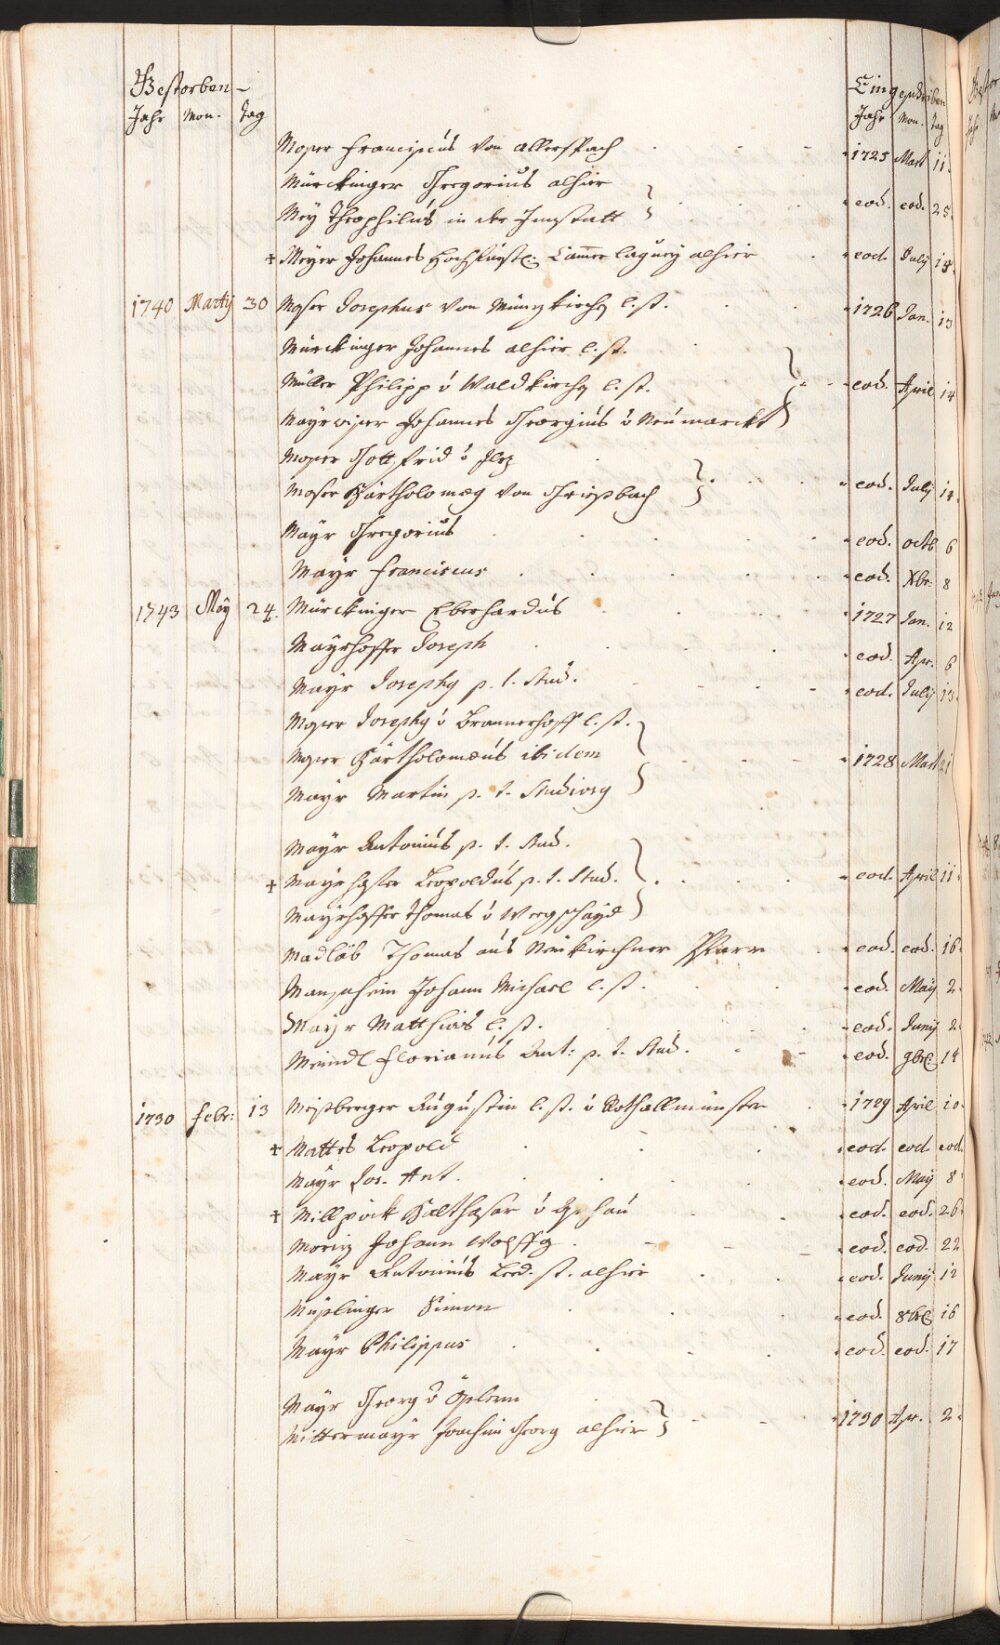 Gestorben Eingeschriben
Jahr Mon. Tag Jahr Mon. Tag
Moser Franciscus von Allerspach 1725 Mart 11.
Mürckinger Gregorius alhier
Mey Theophilus in der Innstatt } eod. eod. 25.
+ Meyer Johannes Hochfürstl. Camer Laquey alhier eod. July 18.
1740 Martij 30 Moser Josephus von Münzkirchen l. st. 1726 Jan. 13
Mürckinger Johannes alhier l. st.
Müller Philipp v Waldkirchen l. st. } eod. April 14
Mayrwiser Johannes Georgius v Neumarckt
Moser Gottfrid v Ilz
Moser Bartholomæus von Griesbach } eod. July 14.
Mayr Gregorius eod. octb 6
Mayr Franciscus eod. Xbr. 8
1743 Maÿ 24. Mürckinger Eberhardus 1727 Jan. 12
Mayrhoffer Joseph eod. Apr. 6
Mayr Josephus p. t. Stud. eod. July 13.
Moser Josephus v Brannerhoff l. st.
Moser Bartholomæus ibidem } 1728 Mart 21
Mayr Martin p. t. Studiosus
Mayr Antonius p. t. Stud.
+ Mayrhofer Leopoldus p. t. Stud. } eod. April 11.
Mayrhoffer Thomas v Wegschayd
Madlab Thomas aus Neukirchner Pfarr eod. eod. 16.
Johann Michael l. st. eod. Maÿ 2.
Mayr Matthias l. st. eod. Junij 2.
Meindl Florianus Ant: p. t. Stud. eod. 9br. 14
1730 Febr: 13 Meisberger Augustin l. st. v Rothallmünster 1729 April 10.
+ Mattes Leopold eod. eod. eod.
Mayr Jos. Ant. eod. Maÿ 8
+ Millpöck Balthasar v eod. eod. 26.
Moriz Johann Wolffg. eod. eod. 22
Mayr Antonius Led. st. alhier eod. Junij 12
Müslinger Simon eod. 8br. 16
Mayr Philippus eod. eod. 17
Mayr Georg v
Mittermayr Joachim Georg alhier } 1730 Apr. 2.